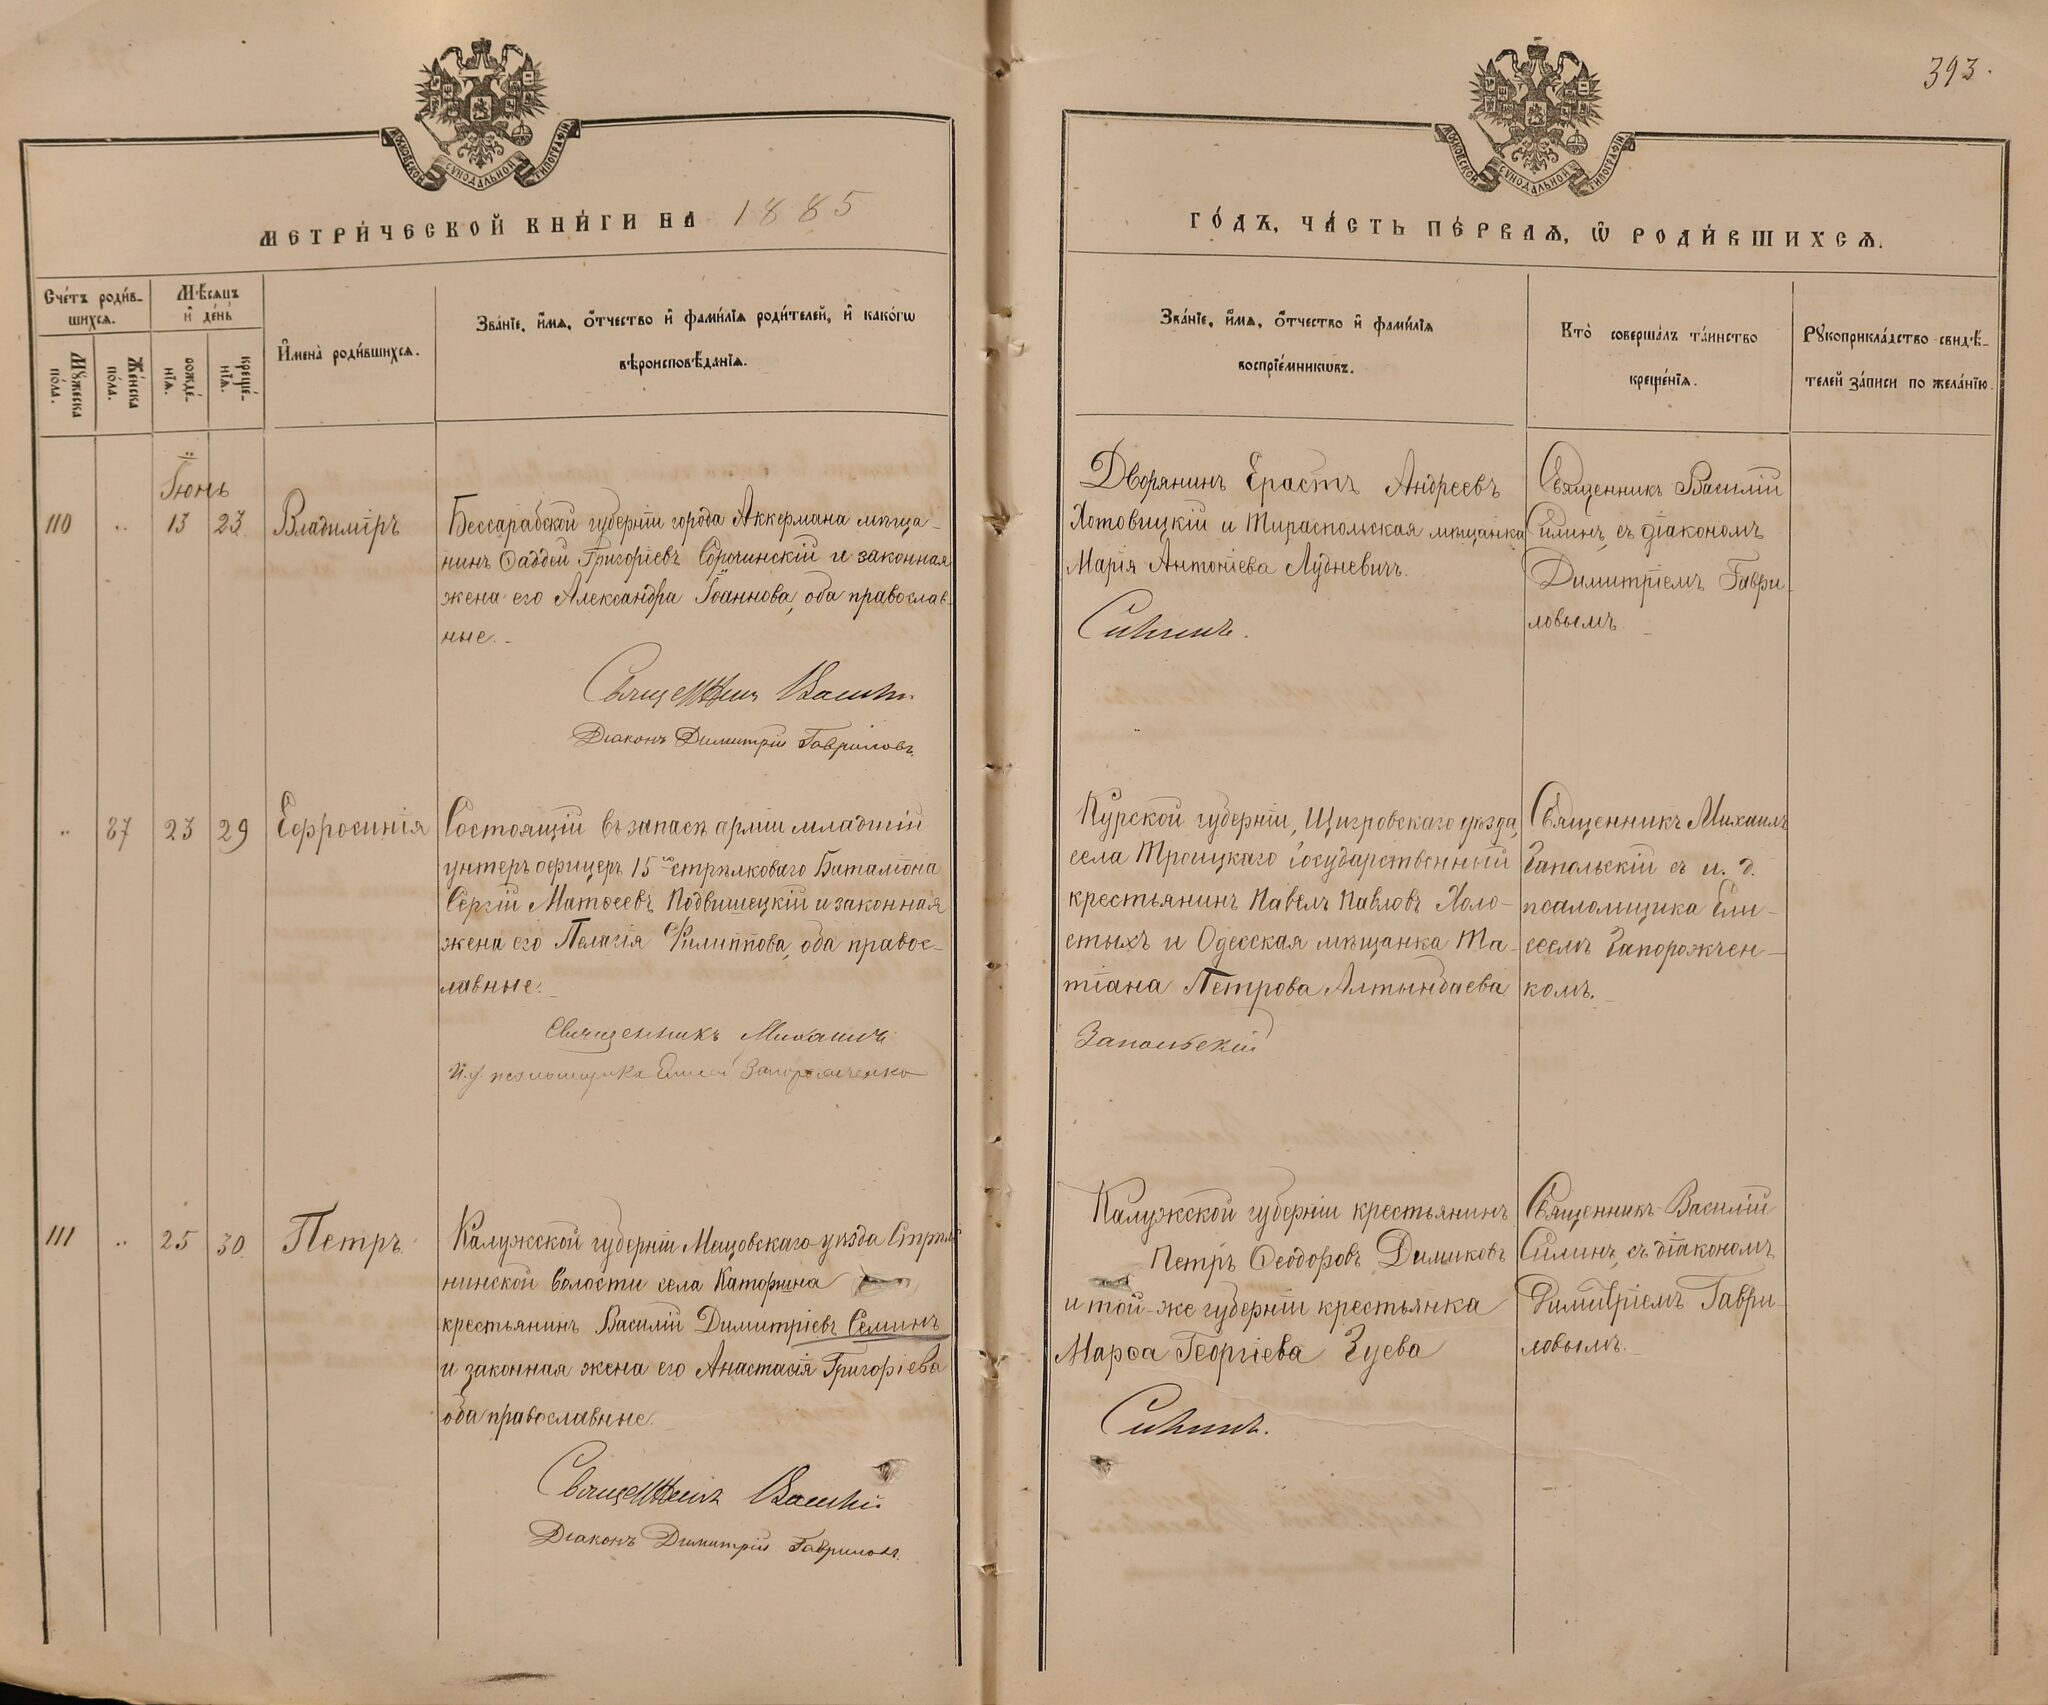 393.
МОСКОВСКОЙ СѴНОДАЛЬНОЙ ТИПОГРАФІИ
МОСКОВСКОЙ СѴНОДАЛЬНОЙ ТИПОГРАФІИ
МЕТРИ́ЧЕСКОЙ КНИ́ГИ НА 1885
ГО́ДЪ, ЧА́СТЬ ПЕ́РВАѦ, Ѽ РОДИ́ВШИХСѦ.
Сче́тъ роди́в-
шихсѧ.
Мꙋжеска по́ла.
Же́нска по́ла.
Мѣ́сѧцъ
и҆ де́нь
рожде́-
нїѧ.
креще́-
нїѧ.
И҆мена̀ роди́вшихсѧ.
Зва́нїе, и҆́мѧ, ѻ҆́тчество и҆ фами́лїѧ роди́телей, и҆ како́гѡ
вѣроисповѣ́данїѧ.
Зва́нїе, и҆́мѧ, ѻ҆́тчество и҆ фами́лїѧ
воспрїе́мникѡвъ.
Кто̀ соверша́лъ та́инство
креще́нїѧ.
Рꙋкоприкла́дство свидѣ́-
телей за́писи по жела́нїю.
Іюнь
110 .. 13 23. Владиміръ
Бессарабской губерніи города Аккермана мѣща-
нинъ Ѳаддей Григоріевъ Сорочинскій и законная
жена его Александра Іоаннова, оба православ-
ные.
Священникъ Василій
Діаконъ Димитрій Гавриловъ.
Дворянинъ Ерастъ Андреевъ
Хотовицкій и Тираспольская мѣщанка
Марія Антоніева Лудневичъ.
Силинъ.
Священникъ Василій
Силинъ, съ діакономъ
Димитріемъ Гаври-
ловымъ.
.. 87 23 29 Ефросинія
Состоящій въ запасѣ арміи младшій
унтеръ офицеръ 15го стрѣлковаго Баталіона
Сергій Матѳеевъ Подвишецкій и законная
жена его Пелагія Филиппова, оба правос-
лавные.
Священникъ Михаилъ
И. д. псаломщика Елисей Запорожченко
Курской губерніи, Щигровскаго уѣзда,
села Троицкаго Государственный
крестьянинъ Павелъ Павловъ Холо-
стыхъ и Одесская мѣщанка Та-
тіана Петрова Алтынбаева
Запольскій
Священникъ Михаилъ
Запольскій съ и. д.
псаломщика Ели-
сеемъ Запорожчен-
комъ.
111 .. 25 30. Петръ
Калужской губерніи Мещовскаго уѣзда
нинской волости села Каторгина
крестьянинъ Василій Димитріевъ Семинъ
и законная жена его Анастасія Григоріева
оба православные.
Священникъ Василій
Діаконъ Димитрій Гавриловъ.
Калужской губерніи крестьянинъ
Петръ Ѳеодоровъ Димиковъ
и той-же губерніи крестьянка
Марѳа Георгіева Зуева
Силинъ.
Священникъ Василій
Силинъ, съ діакономъ
Димитріемъ Гаври-
ловымъ.